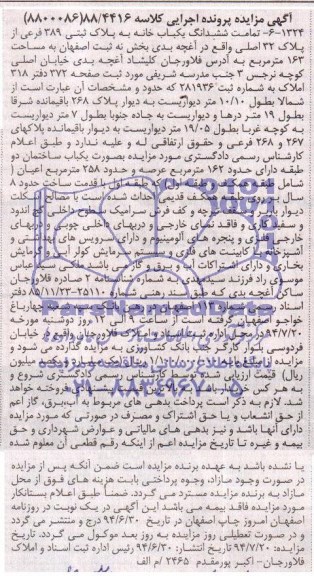 آگهی مزایده پرونده اجرایی کلاسه ۸۸/۴۴۱۶(۸۸۰۰۰۸۶)
۶-۱۳۲۴- تمامت ششدانگ یکباب خانه به پلاک ثبتی ۳۸۹ فرعی از
پلاک ۳۲ اصلی واقع در آغچه بدی بخش نه ثبت اصفهان به مساحت
۱۶۳ مترمربع به آدرس فلاورجان کلیشاد آغچه بدی خیابان اصلی
کوچه نرجس ۳ جنب مدرسه شریفی مورد ثبت صفحه ۳۷۲ دفتر ۳۱۸
املاک به شماره ثبت ۲۸۱۹۳۶ که حدود و مشخصات آن عبارت است از
شمالا بطول ۱۰/۱۰ متر دیواریست به دیوار پلاک ۲۶۸ باقیمانده شرقا
بطول ۱۹ متر درها و دیواریست به جاده جنوبا بطول ۷ متر دیواریست
به کوچه غربا بطول ۱۹/۰۵ متر دیواریست به دیوار باقیمانده پلاکهای
۲۶۷ و ۲۶۸ فرعی و حقوق ارتفاقی له و علیه ندارد و طبق اعلام
کارشناس رسمی دادگستری مورد مزایده بصورت یکباب ساختمان دو
طبقه دارای حدود ۱۶۲ مترمربع عرصه و حدود ۲۵۸ مترمربع اعیان (
شامل طبقه همکف و اول که طبقه اول با قدمت ساخت حدود ۸
سال بر روی طبقه همکف قدیمی احداث شده است با مصالح اسکلت
دیوار باربر و سقف تیرچه و کف فرش سرامیک و سطوح داخلی گچ اندود
و سفیدکاری و فاقد نمای خارجی و دربهای داخلی چوبی و دربهای
خارجی فلزی و پنجره های آلومینیوم و دارای سرویس های بهداشتی و
آشپزخانه با کابینت های فلزی و سیستم سرمایش کولر آبی و گرمایش
بخاری و دارای اشتراکات آب و برق و گاز می باشد ملکی سیدعباس
موسوی راد فرزند سیدمهدی به شماره شناسنامه ۲ صادره فلاورجان
ساکن آغچه بدی که طبق سند رهنی شماره ۲۵۱۱۰-۸۵/۱۱/۲۳ دفتر
خواجو اصفهان
۹۴/۷/۲۰ در محل اداره ثبت اسناد و املاک فلاورجان واقع در خیابان
فردوسی بلوار کارگر جنب بانک کشاورزی به مزایده گذارده می شود و
ریال) قیمت ارزیابی شده توسط کارشناس رسمی دادگستری شروع و
شد. لازم به ذکر است پرداخت بدهی های مربوط به آب،برق، گاز اعم
از حق انشعاب و یا حق اشتراک و مصرف در صورتی که مورد مزایده
دارای آنها باشد و نیز بدهی های مالیاتی و عوارض شهرداری و حق
بیمه و غیره تا تاریخ مزایده اعم از اینکه رقم قطعی آن معلوم شده
یا نشده باشد به عهده برنده مزایده است ضمن آنکه پس از مزایده
در صورت وجود مازاد، وجوه پرداختی بابت هزینه های فوق از محل
مازاد به برنده مزایده مسترد می گردد. ضمنا طبق اعلام بستانکار
مورد مزایده فاقد بیمه می باشد این آگهی در یک نوبت در روزنامه
اصفهان امروز چاپ اصفهان در تاریخ ۹۴/۶/۳۰ درج و منتشر می گردد
و در صورت تعطیلی روز مزایده به روز بعد موکول می گردد. تاریخ
مزایده: ۹۴/۷/۲۰ تاریخ انتشار: ۹۴/۶/۳۰ رئیس اداره ثبت اسناد و املاک
فلاورجان- اکبر پورمقدم ۲۴۶۵ /م الف